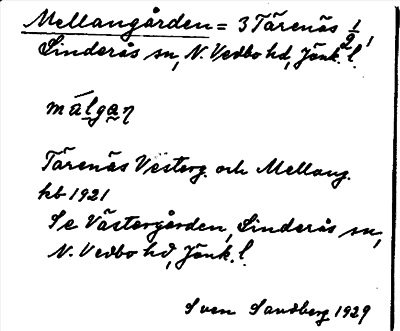 Mellangården = 3 Tärenäs 1/2,
Linderås sn, N. Vedbo hd, Jönk. l.
málgaη
Tärenäs Västerg. och Mellang.
kb 1921
Se Västergården, Linderås sn,
N. Vedbo hd, Jönk. l.
Sven Sandberg 1929